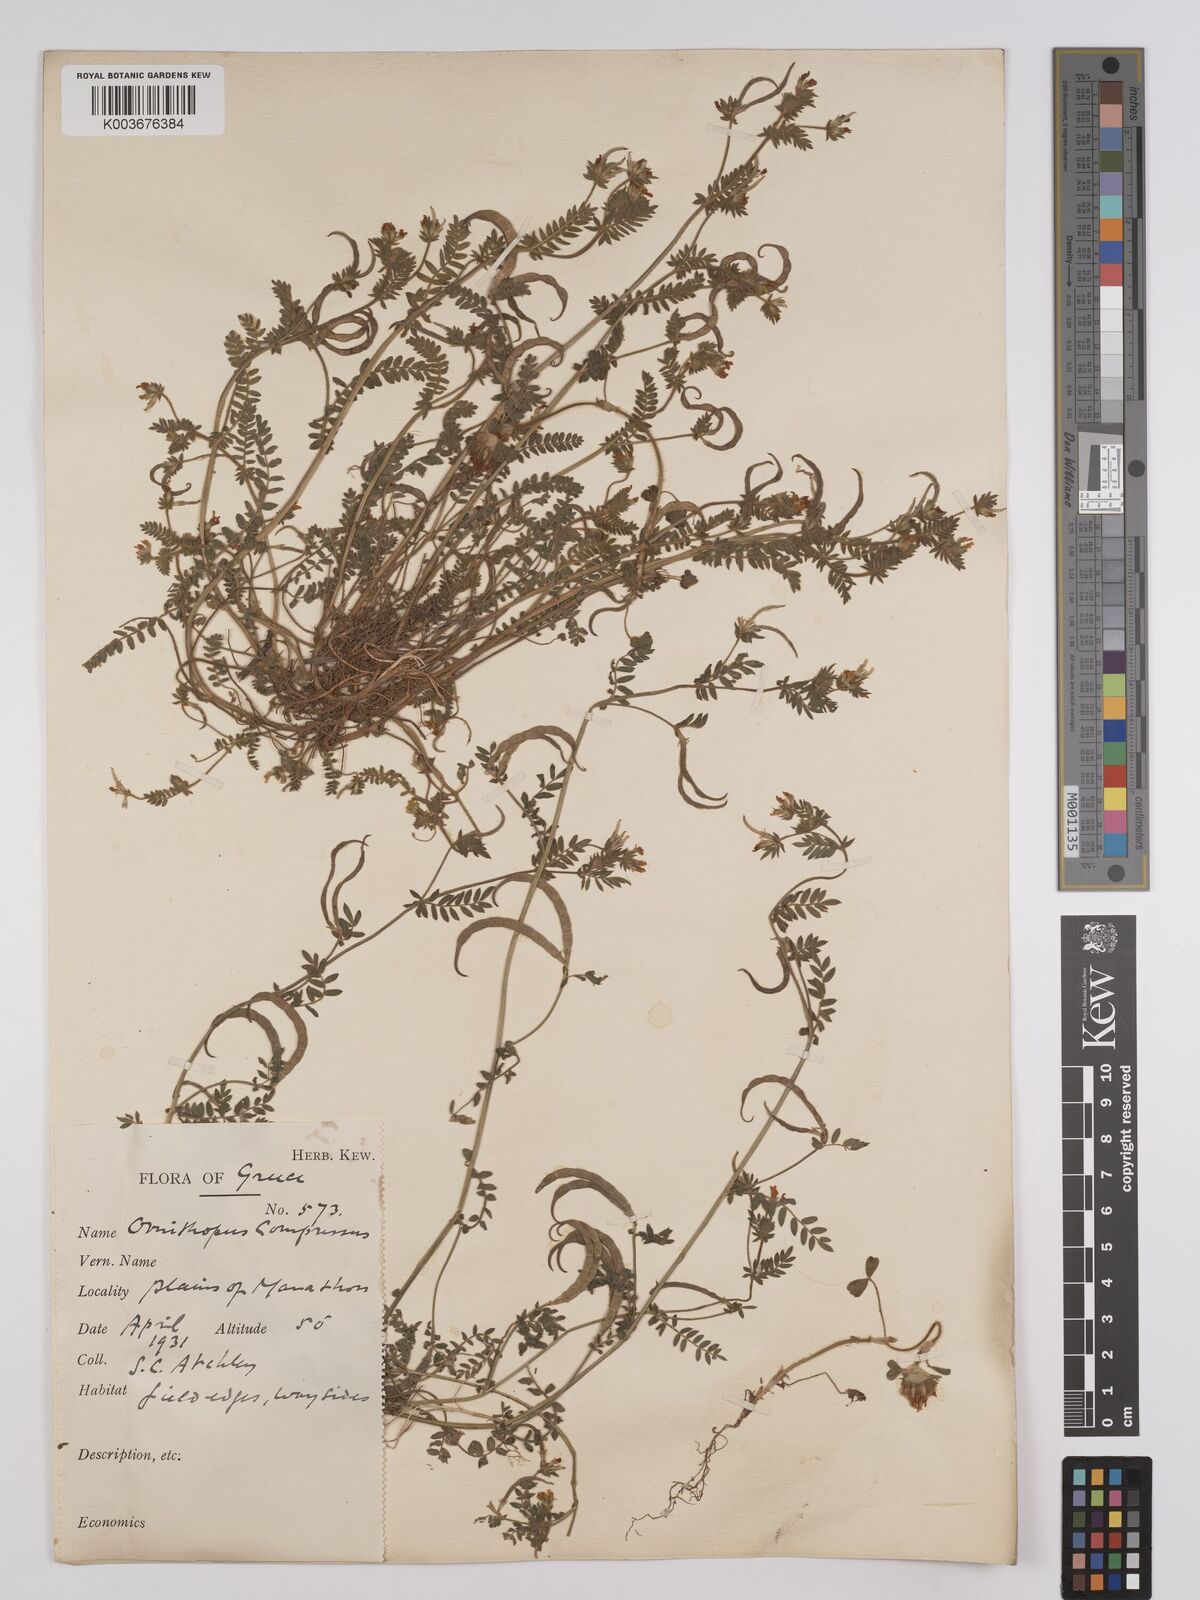 ROYAL BOTANIC GARDENS KEW
K003676384
HERB. KEW.
FLORA OF Greece
No. 573.
Name Ornithopus Compressus
Vern. Name
Locality plains of Marathon
Date April 1931 Altitude 50
Coll. S.C. Atchley
Habitat field edges, waysides
Description, etc:
Economics
inches
centimeters
Density
Don Williams
M001135
Royal Botanic Gardens
Kew
0 1 2 3 4 5 6 7 8 9 10
cm
copyright reserved